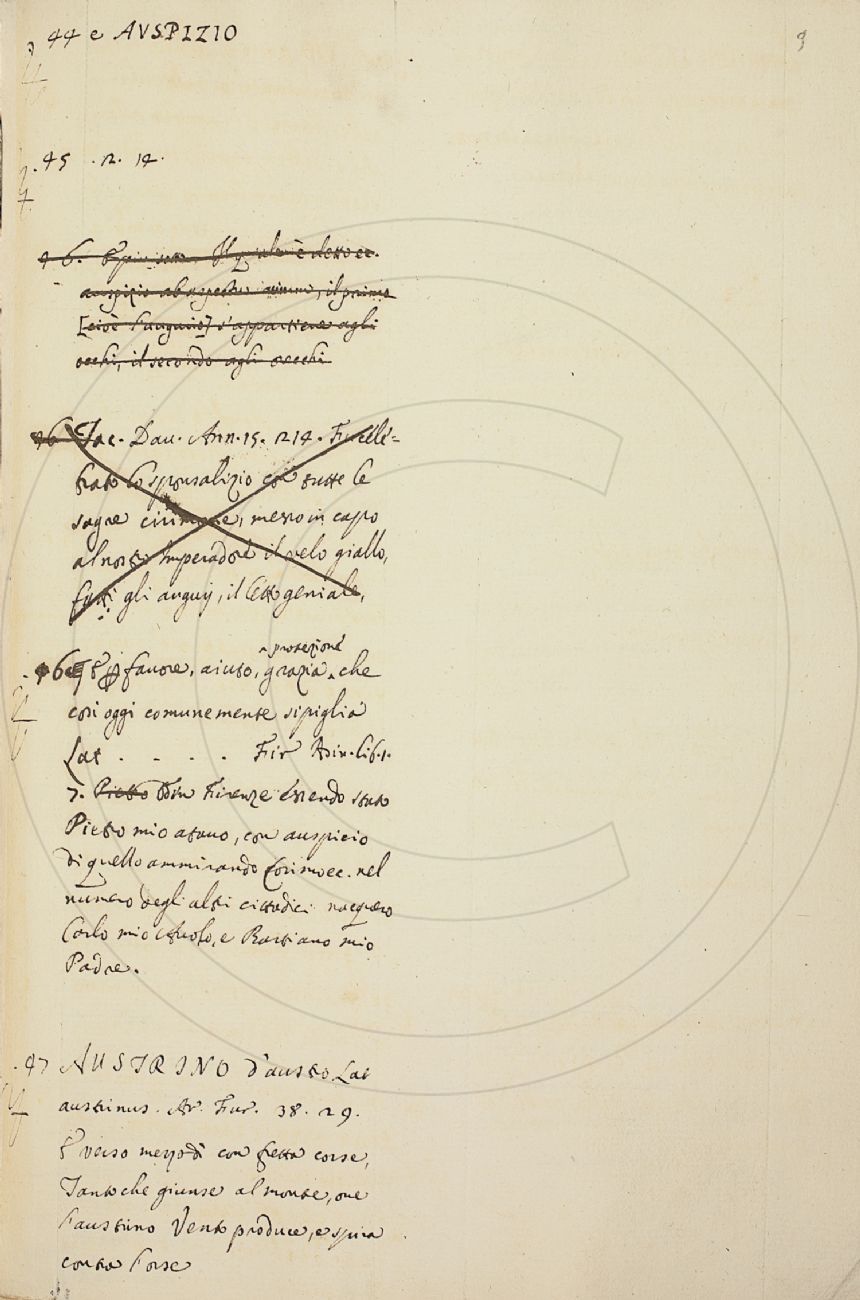 44 e AVSPIZIO
9
45 . 12. 14.
46. Il quale è detto ec.
auspizio ab aspectu avium, il primo
[cioè l'augurio] s'appartiene agli
occhi, il secondo agli orecchi
46 Tac. Dau. Ann. 15. 214. Fu cele=
brato lo sponsalizio con tutte le
sagre cirimonie, messo in capo
al nostro Imperadore il velo giallo,
furti gli augurj, il letto geniale,
46 e § P favore, aiuto, grazia, che
protezione
così oggi comunemente si piglia
Lat . . . . Fir Asin. lib. 1.
7. Pietro In Firenze essendo stato
Pietro mio atavo, con auspicio
di quello ammirando Cosimo ec. nel
numero degli altri cittadini nacquero
Carlo mio Avolo, e Bastiano mio
Padre.
47 AUSTRINO d'austro Lat
austrinus. Ar. Fur. 38. 29.
E verso mezzodì con fretta corse,
Tanto che giunse al monte, one
l'austrino Vento produce, e spira
contro l'orse